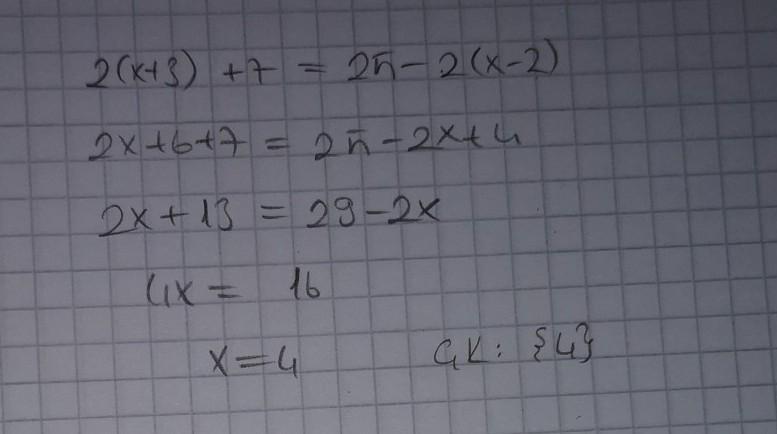 2(x+3) +7 = 25-2(x-2)
2x+6+7 = 25-2x+4
2x+13 = 29-2x
4x = 16
x=4 ÇK: {4}